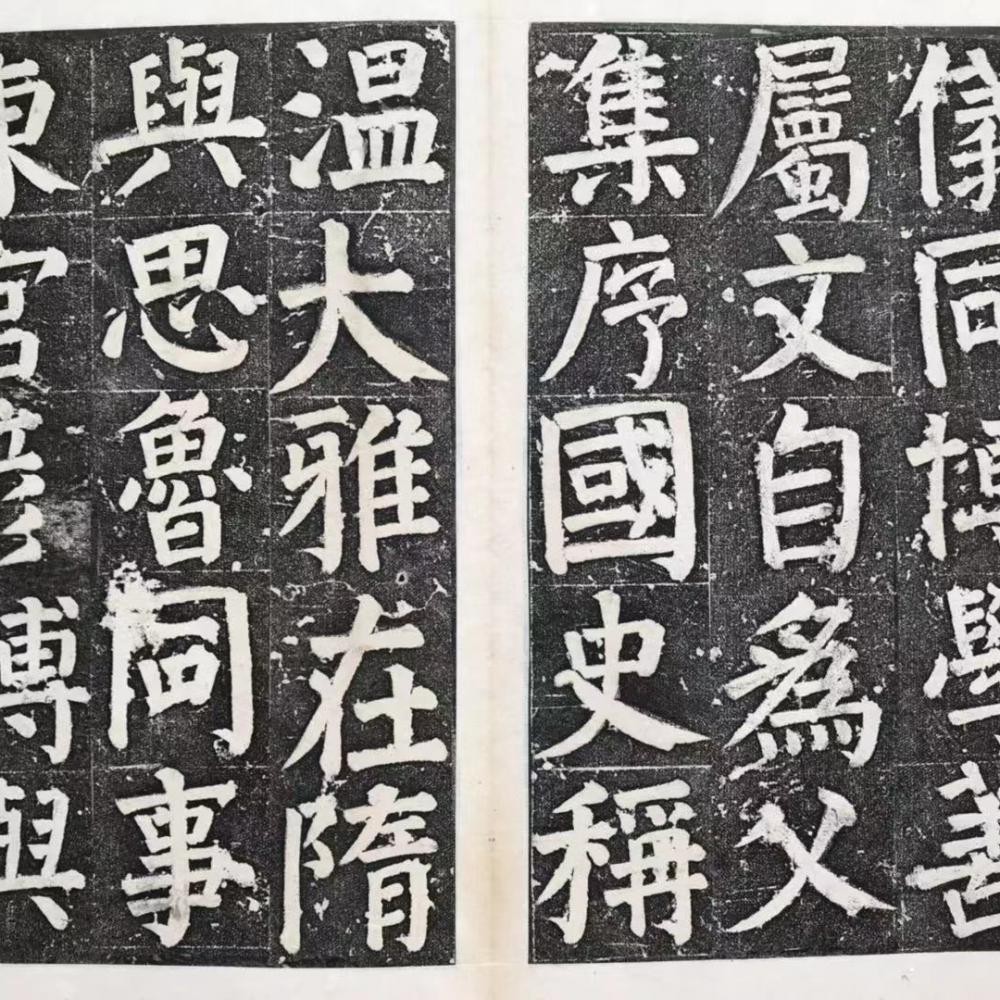 儀同博學善
屬文自為父
集序國史稱
溫大雅在隋
與思魯同事
東宮彥博與